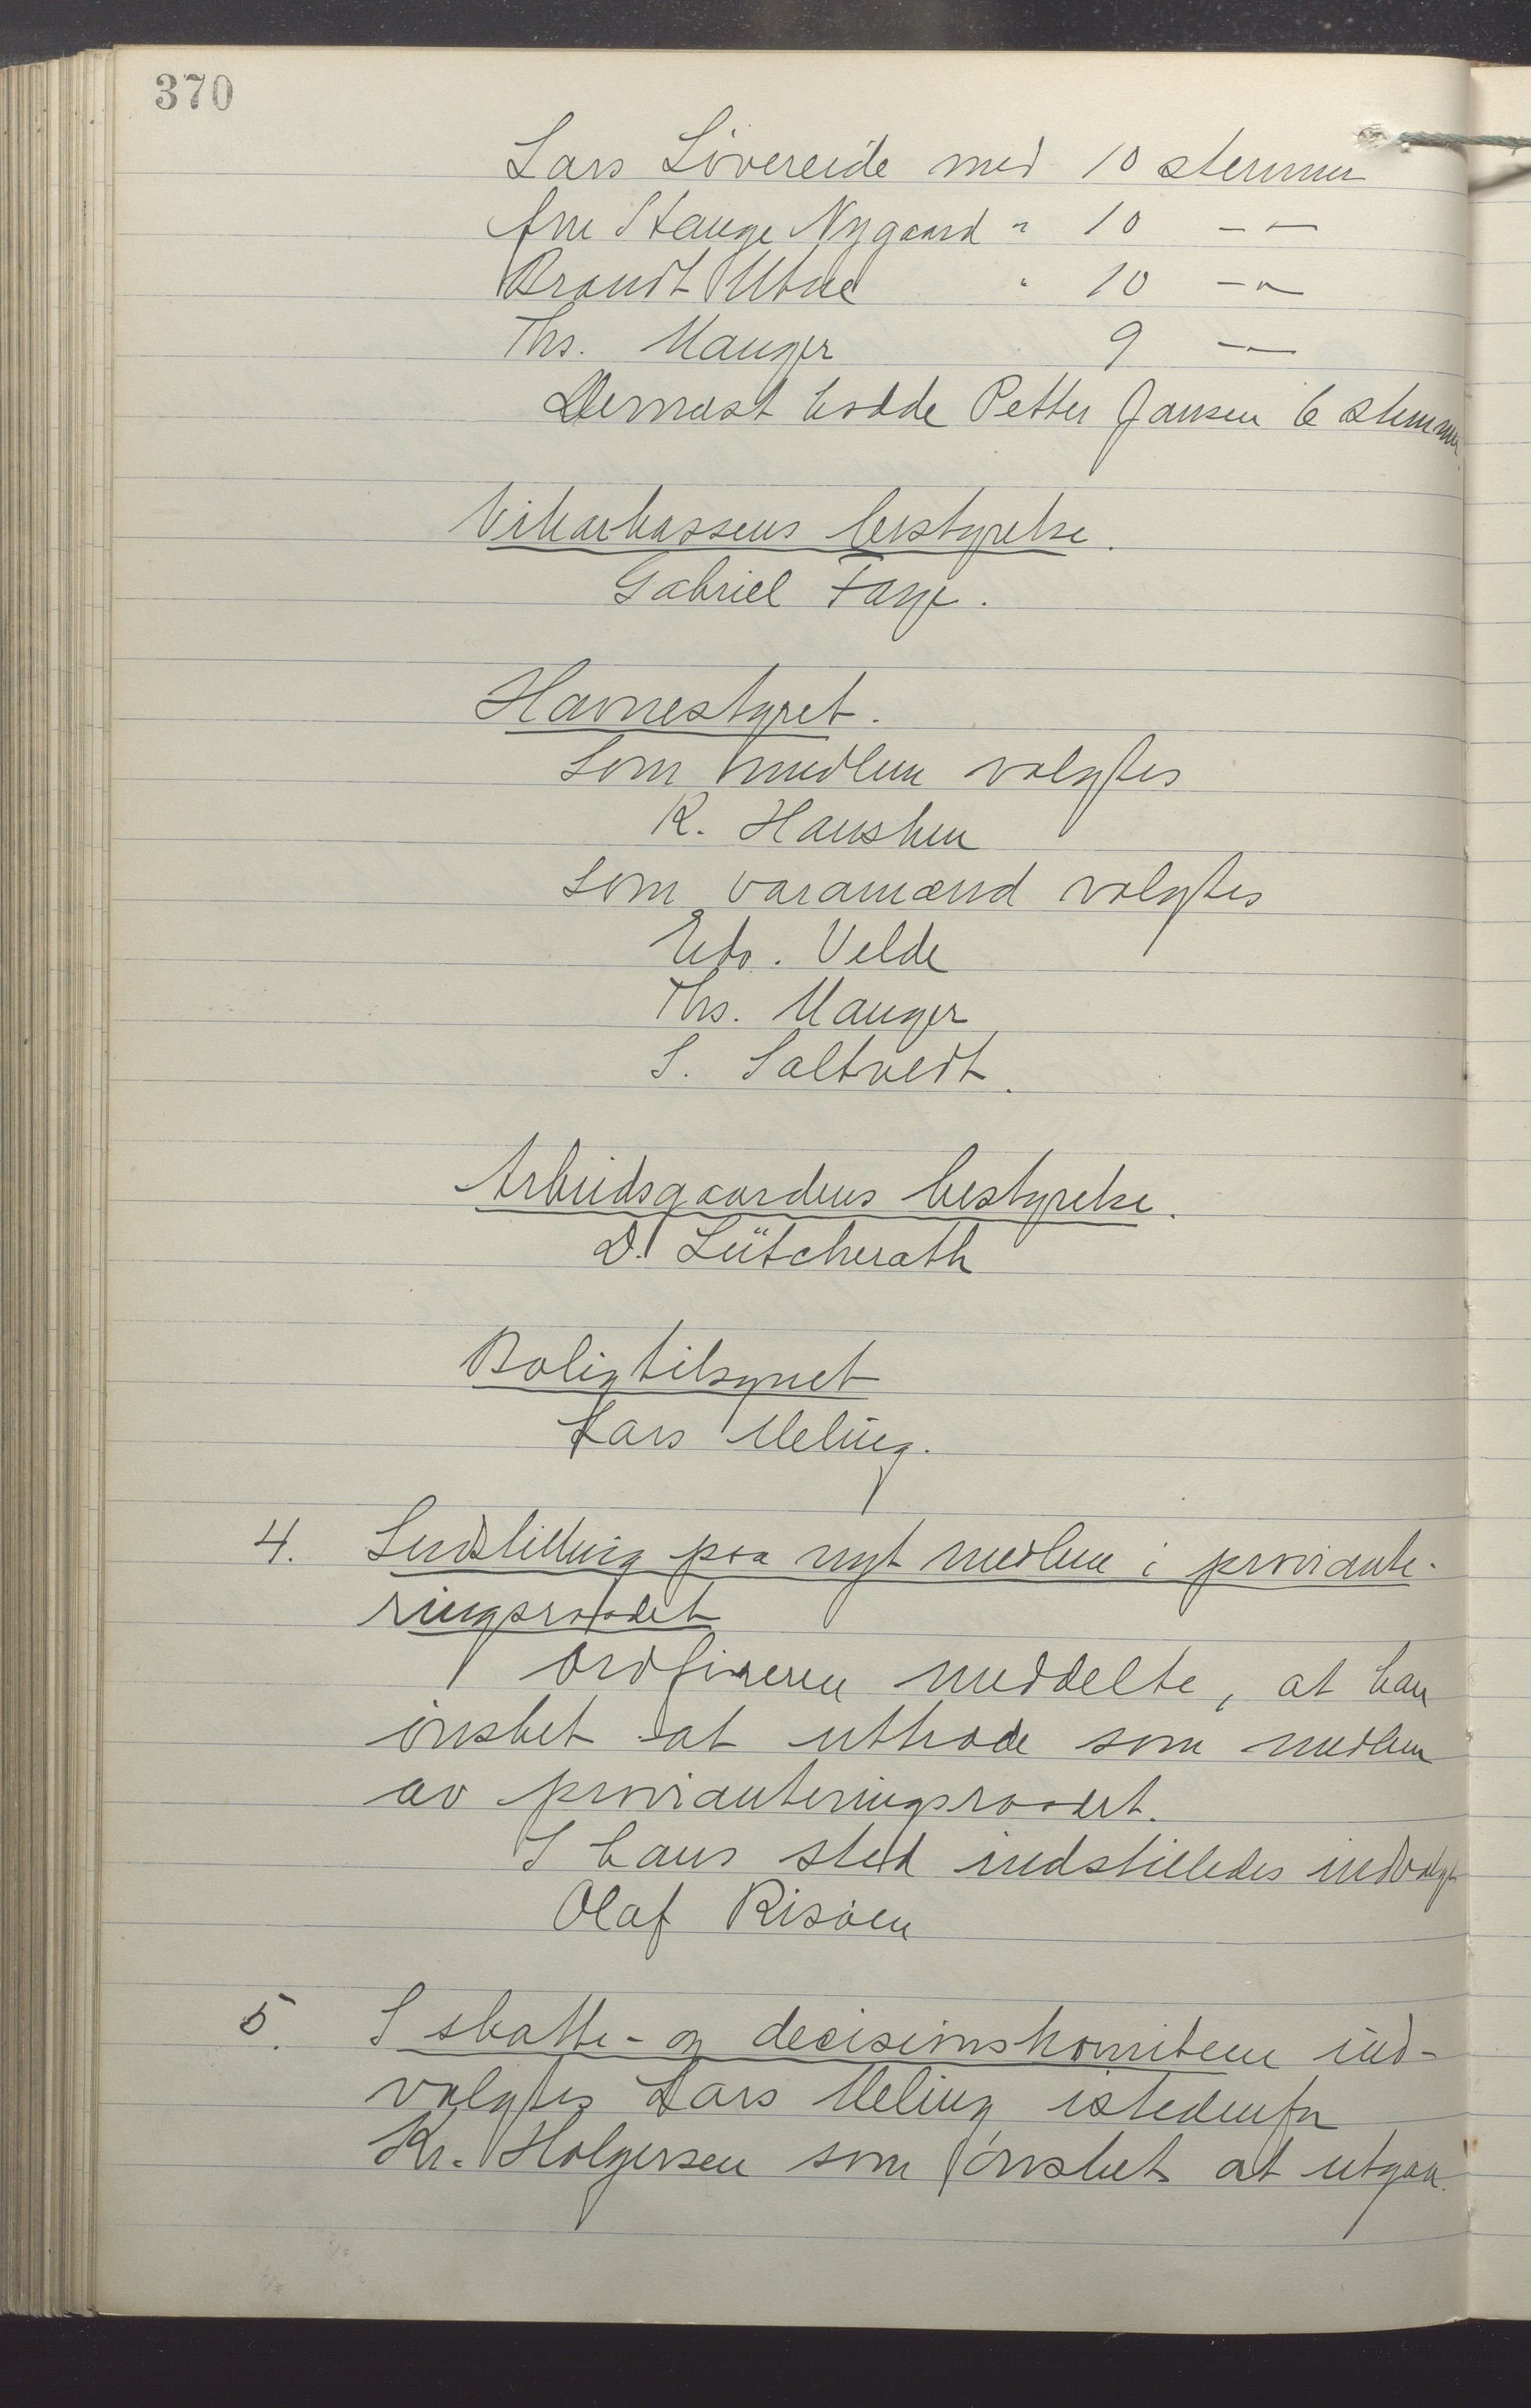 370
Lars Lövereide med 10 stemmer
fru Stange Nygaard " 10 — " —
Brandt Utne " 10 — " —
Ths. Manger 9 — " —
Dernæst hadde Petter Jansen 6 stemmer
Vikarkassens bestyrelse.
Gabriel Fage.
Havnestyret.
Som medlem valgtes
K. Hansken
som varamænd valgtes
Edv. Velde
Ths. Manger
S. Saltvedt.
Arbeidsgaardens bestyrelse.
D. Lütcherath
Boligtilsynet
Lars Meling.
4. Indstilling paa nyt medlem i proviante-
ringsraadet
Ordföreren meddelte, at han
önsket at uttræde som medlem
av provianteringsraadet.
I hans sted indstilledes indvalgt
Olaf Risöen
5. I skatte- og decisionskomiteen ind-
valgtes Lars Meling istedenfor
Kr. Holgersen som önsket at utgaa.